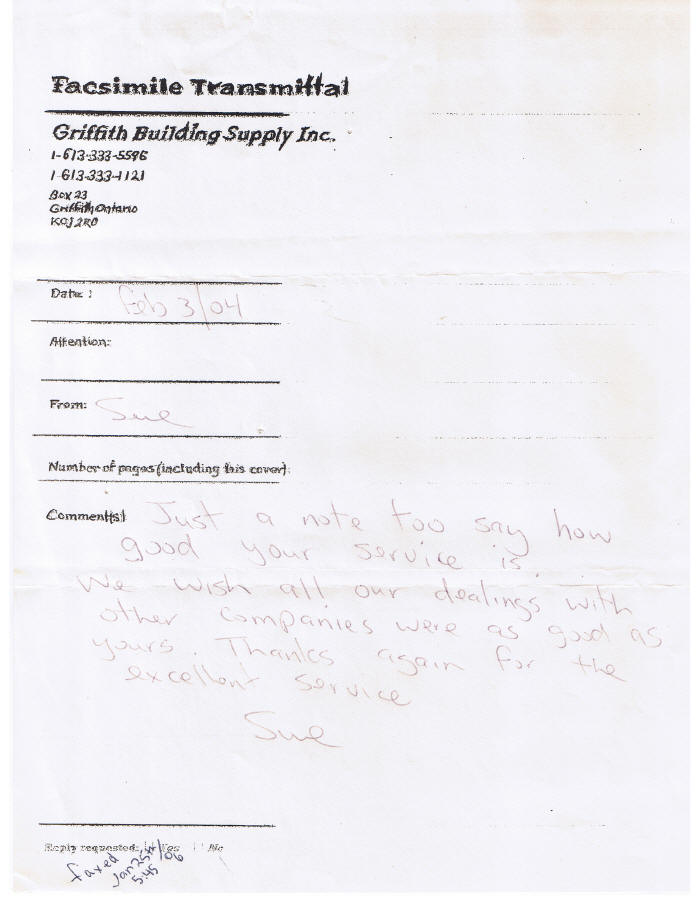 Facsimile Transmittal
Griffith Building Supply Inc.
1-613-333-5596
1-613-333-1121
Box 23
Griffith Ontario
K0J 2R0
Date: Feb 3/04
Attention:
From: Sue
Number of pages (including this cover):
Comment(s) Just a note too say how
good your service is.
We wish all our dealings with
other companies were as good as
yours. Thanks again for the
excellent service
Sue
Reply requested: Yes No
faxed
Jan 25th/06
5:45